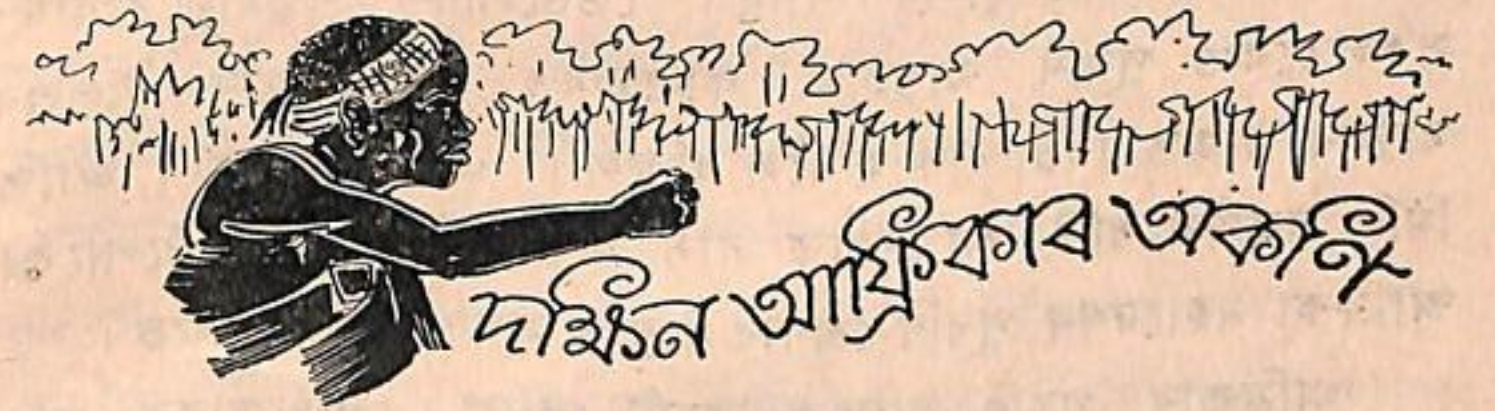 দক্ষিন আফ্ৰিকাৰ অকণি